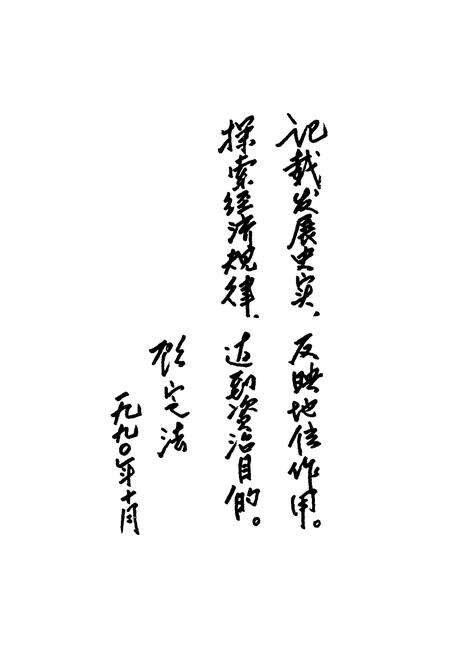 记载发展史实、反映地位作用。
探索经济规律、达到资治目的。
法
一九九〇年十月